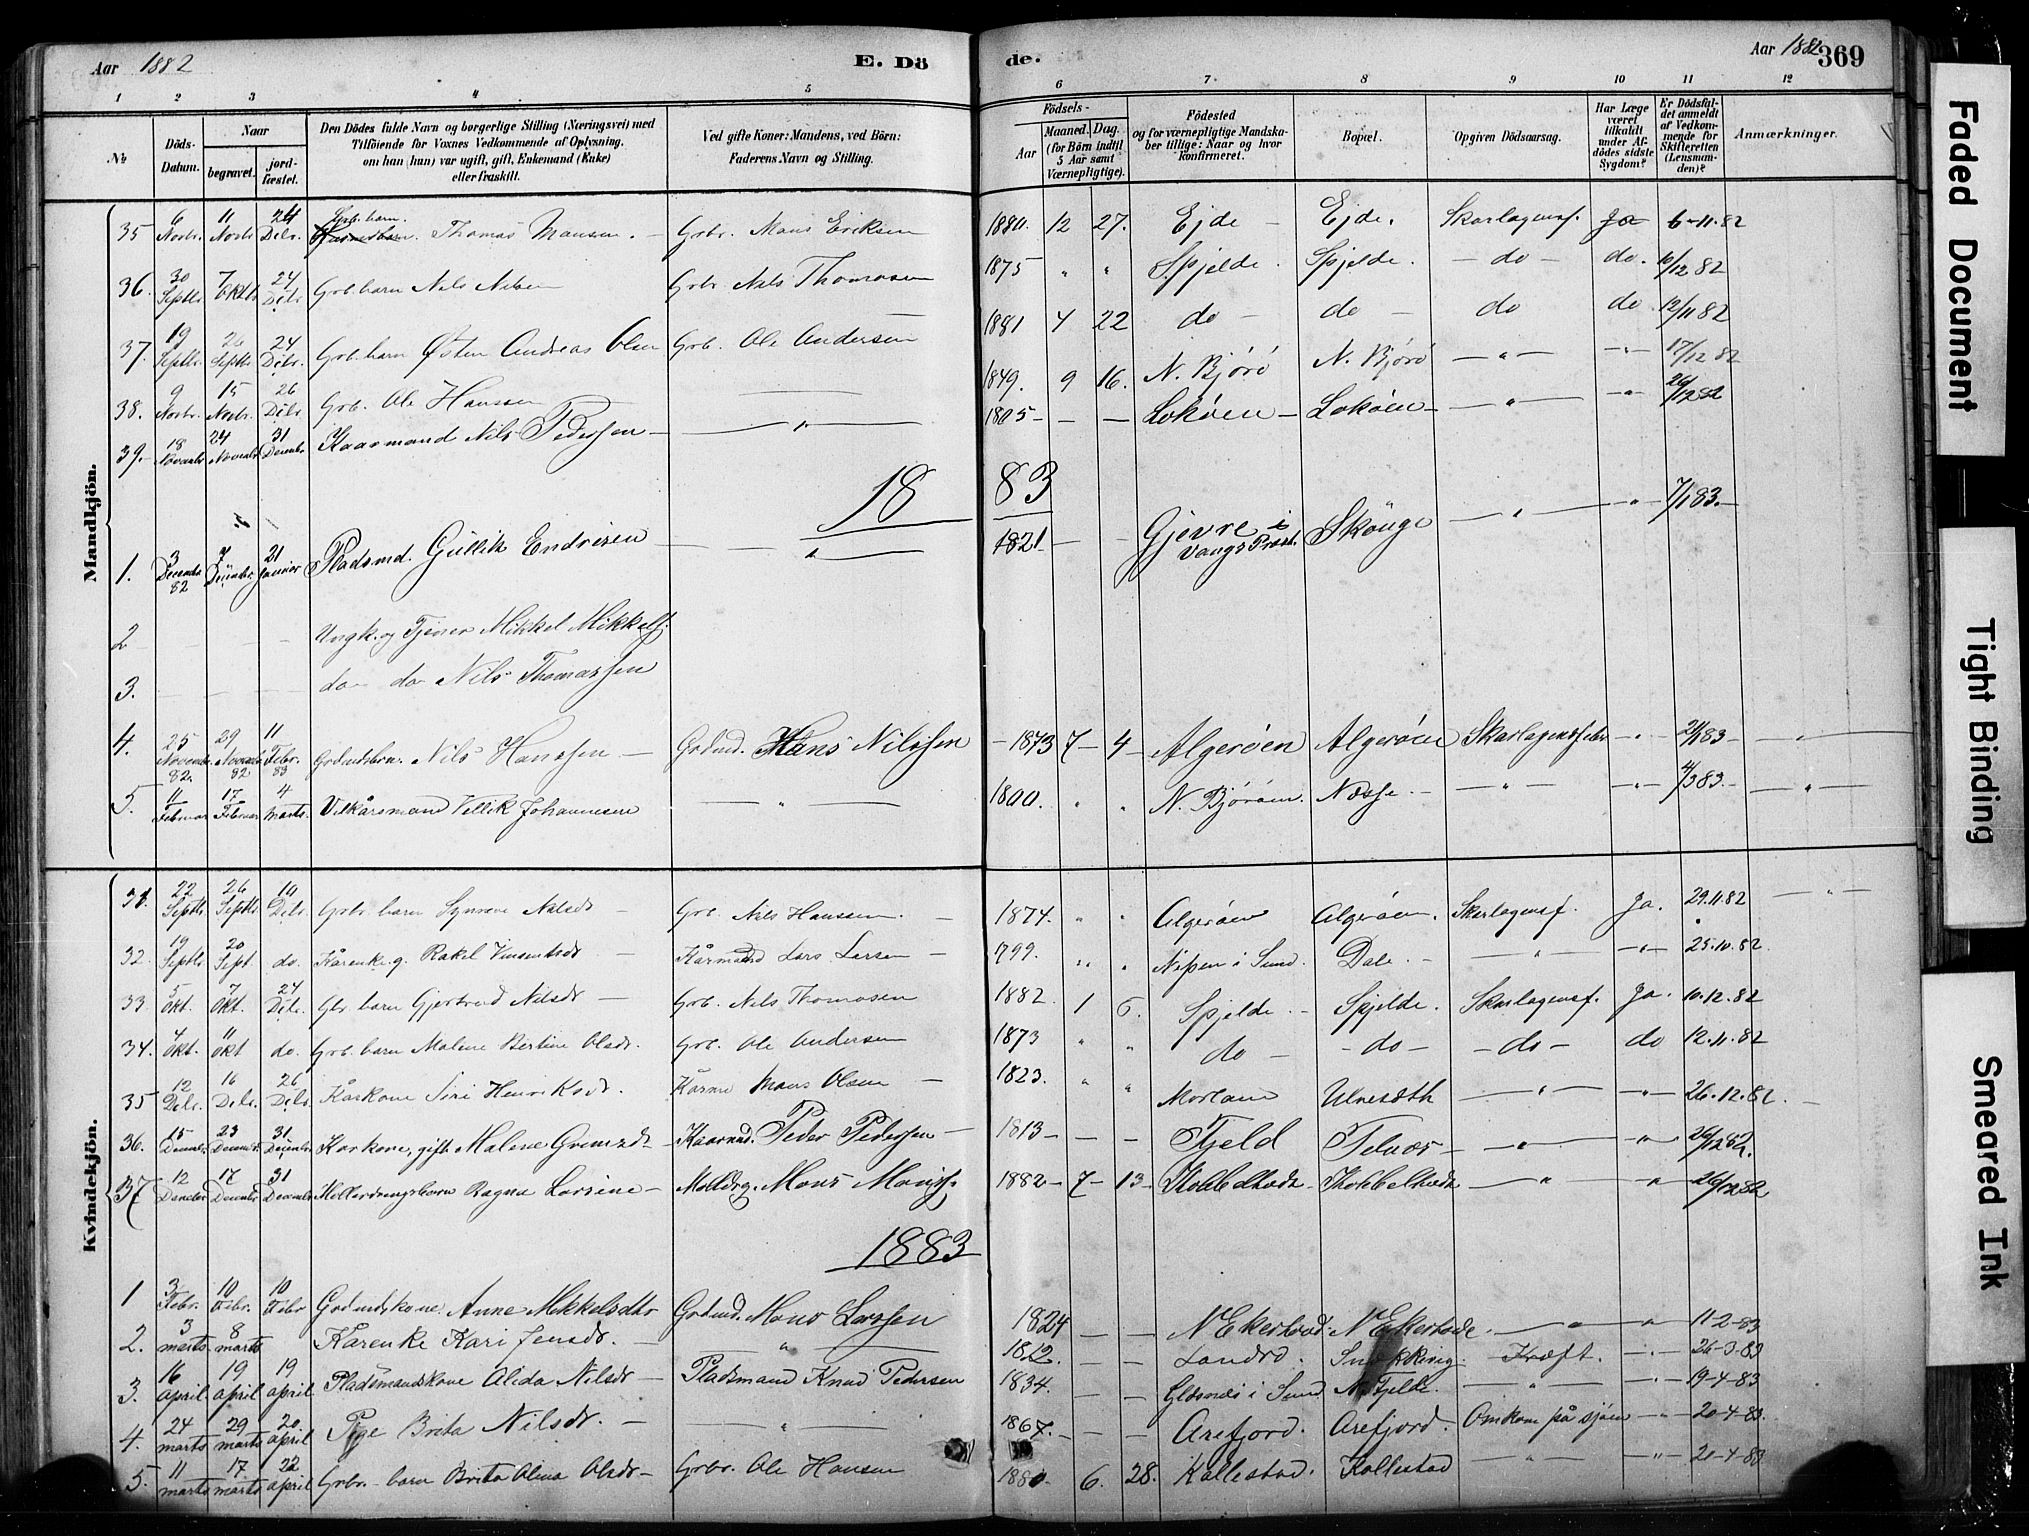 Aar 1882
E. Dö
de.
Aar 1882
369
1 2 3 4 5 6 7 8 9 10 11 12
№
Döds-Datum.
Naar
begravet.
jord-fæstet.
Den Dödes fulde Navn og borgerlige Stilling (Næringsvei) med
Tilföiende for Voxnes Vedkommende af Oplysning,
om han (hun) var ugift, gift, Enkemand (Enke)
eller fraskilt.
Ved gifte Koner: Mandens, ved Börn:
Faderens Navn og Stilling.
Födsels-
Aar
Maaned. Dag.
(for Börn indtil
5 Aar samt
Værnepligtige).
Födested
og for værnepligtige Mandska-
ber tillige: Naar og hvor
konfirmeret.
Bopæl.
Opgiven Dödsaarsag.
Har Læge
været
tilkaldt
under Af-
dödes sidste
Sygdom?
Er Dödsfal-
det anmeldt
af Vedkom-
mende for
Skifteretten
(Lensman-
den)?
Anmærkninger.
Mandkjön.
35 6 Novbr. 11 Novbr. 24 Dcbr. Grb. barn. Thomas Monsen. — Grbr. Mons Eriksen 1880. 12 27. Ejde — Ejde. Skarlagensf. Ja 6-11.82
36. 30 Septbr. 7 Oktbr. 24 Dcbr. Grb. barn Nils Nilsen Grbr. Nils Thomasen 1875 " " Spjelde. Spjelde. — do — do. 10/12 82
37. 19 Septbr. 26 Septbr. 24 Dcbr. Grb. barn Østen Andreas Olsen Grb. Ole Andersen 1881 4 22 do — do — do do 12/11 82
38. 9 Novbr. 15 Novbr. 26 Dcbr. Grb. Ole Hanssen — 1849. 9 16. N. Bjørø N. Bjørø — " — " 17/12 82
39. 18 November 24 November 31 December Kaarmand Nils Pederssen — " — 1805 — — Lokøen — Lokøen — " — " 26/12 82
1883
1. 3 December 82 7 December 21 Januar Pladsmd. Gullik Endresen — " — 1821 — — Gjevre i Vangs Præst. Skouge — " — " — 7/1 83. —
2 — Ungk. og Tjener Mikkel Mikkels.
3. — do — do — Nils Thomassen
4. 25 November 82. 29 November 82 11 Febr. 83 Grdmdsbrn. Nils Hanssen — Grdmd. Hans Nilssen — 1873 7 — 4 — Algerøen Algerøen Skarlagensfeber — " — 2/1 83 — " —
5. 11 Februar 17 Februar 4 Marts. Vilkårsmand Villik Johannesen — " — 1800. " " N. Bjørøen. Næsse. — " — " — 4/3 83. — " —
Kvindekjön.
31. 22 Septbr. 26 Septbr. 10 Dcbr. Grbr. barn Synneve Nilsdr — Grb. Nils Hanssen. — 1874. " " Algerøen Algerøen. Skarlagensf. Ja. 29.11.82 — " —
32. 19 Septbr. 20 Sept. do. Kårenke g. Rakel Vinsentsdr — Kårmand Lars Larsen — 1799. " " Nipen i Sund. Dale. — " — " — 25.10.82
33. 5 Okt. 7 Okt. 24 Dcbr. Gbr. barn Gjertrud Nilsdr — Grb. Nils Thomasen 1882. 1 6. Spjelde. — Spjelde. Skarlagensf. Ja. 10.12.82
34. 4 Okt. 11 Okt do. Grb. barn Malene Bertine Olsdr. Grb. Ole Andersen 1873 " " do — — do — — do — do 12.11.82
35 12 Dcbr. 16 Dcbr. 26 Dcbr. Kårkone Siri Henriksdr. Kårmd Mons Olsen — 1823. " " Morland Ulvesæth — " — " — 26.12.82.
36. 15 Decembr. 23 Decembr. 31 December Karkone, gift Malene Grimsdr — Kaarmd. Peder Pederssen — 1813 — — — Fjeld Telvær — " — " 26/12 82.
37 12 Decembr 17 Decembr. 31 December Ragna Larsine — Mons Monss. 1882 — 7 — 13 — Kobbeltvedt — Kobbeltvedt — " — " 26/12 82
1883
1 3 Febr. 10 Febr. 10 Febr Grdmdskone Anne Mikkelsdtr Grdmd. Mons Larssen 1824 — — N. Ekerhovd. N. Ekerhovde. — " — " 11-2-83
2. 3 marts 8 marts Kårenke Kari Jensdr. — " — 1812. — — Landrø. Kræft. — " — 26-3-83
3. 16 april 19 april 19 april Pladsmandskone Alida Nilsdr — Pladsmand Knud Pedersen 1834. — — Glesnes i Sund N. Fjelde. — " — " — 19-4-83
4. 24 marts 29 marts 20 april Pige Brita Nilsdr. — " — 1867. — — Arefjord. Arefjord. Omkom på sjøen — " — 20-4-83.
5. 11 marts 17 marts 22 april Grbr. barn Brita Olina Olsdr — Grbr. Ole Hansen 1880. 6. 28. Kallestad. Kallestad — " — " — 20-4-83
Faded Document
Tight Binding
Smeared Ink